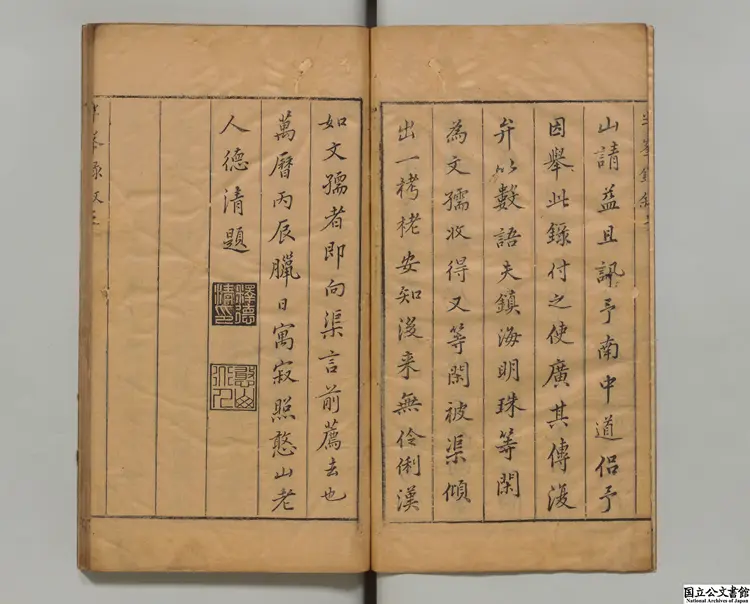 山請益且訊予南中道侶予
因舉此錄付之使廣其傳後
弁以數語夫鎮海明珠等閑
為文孺收得又等閑被渠傾
出一栲栳安知後来無伶俐漢
如文孺者即向渠言前薦去也
萬曆丙辰臘日寓寂照憨山老
人德清題
釋德清印
憨山
国立公文書館
National Archives of Japan